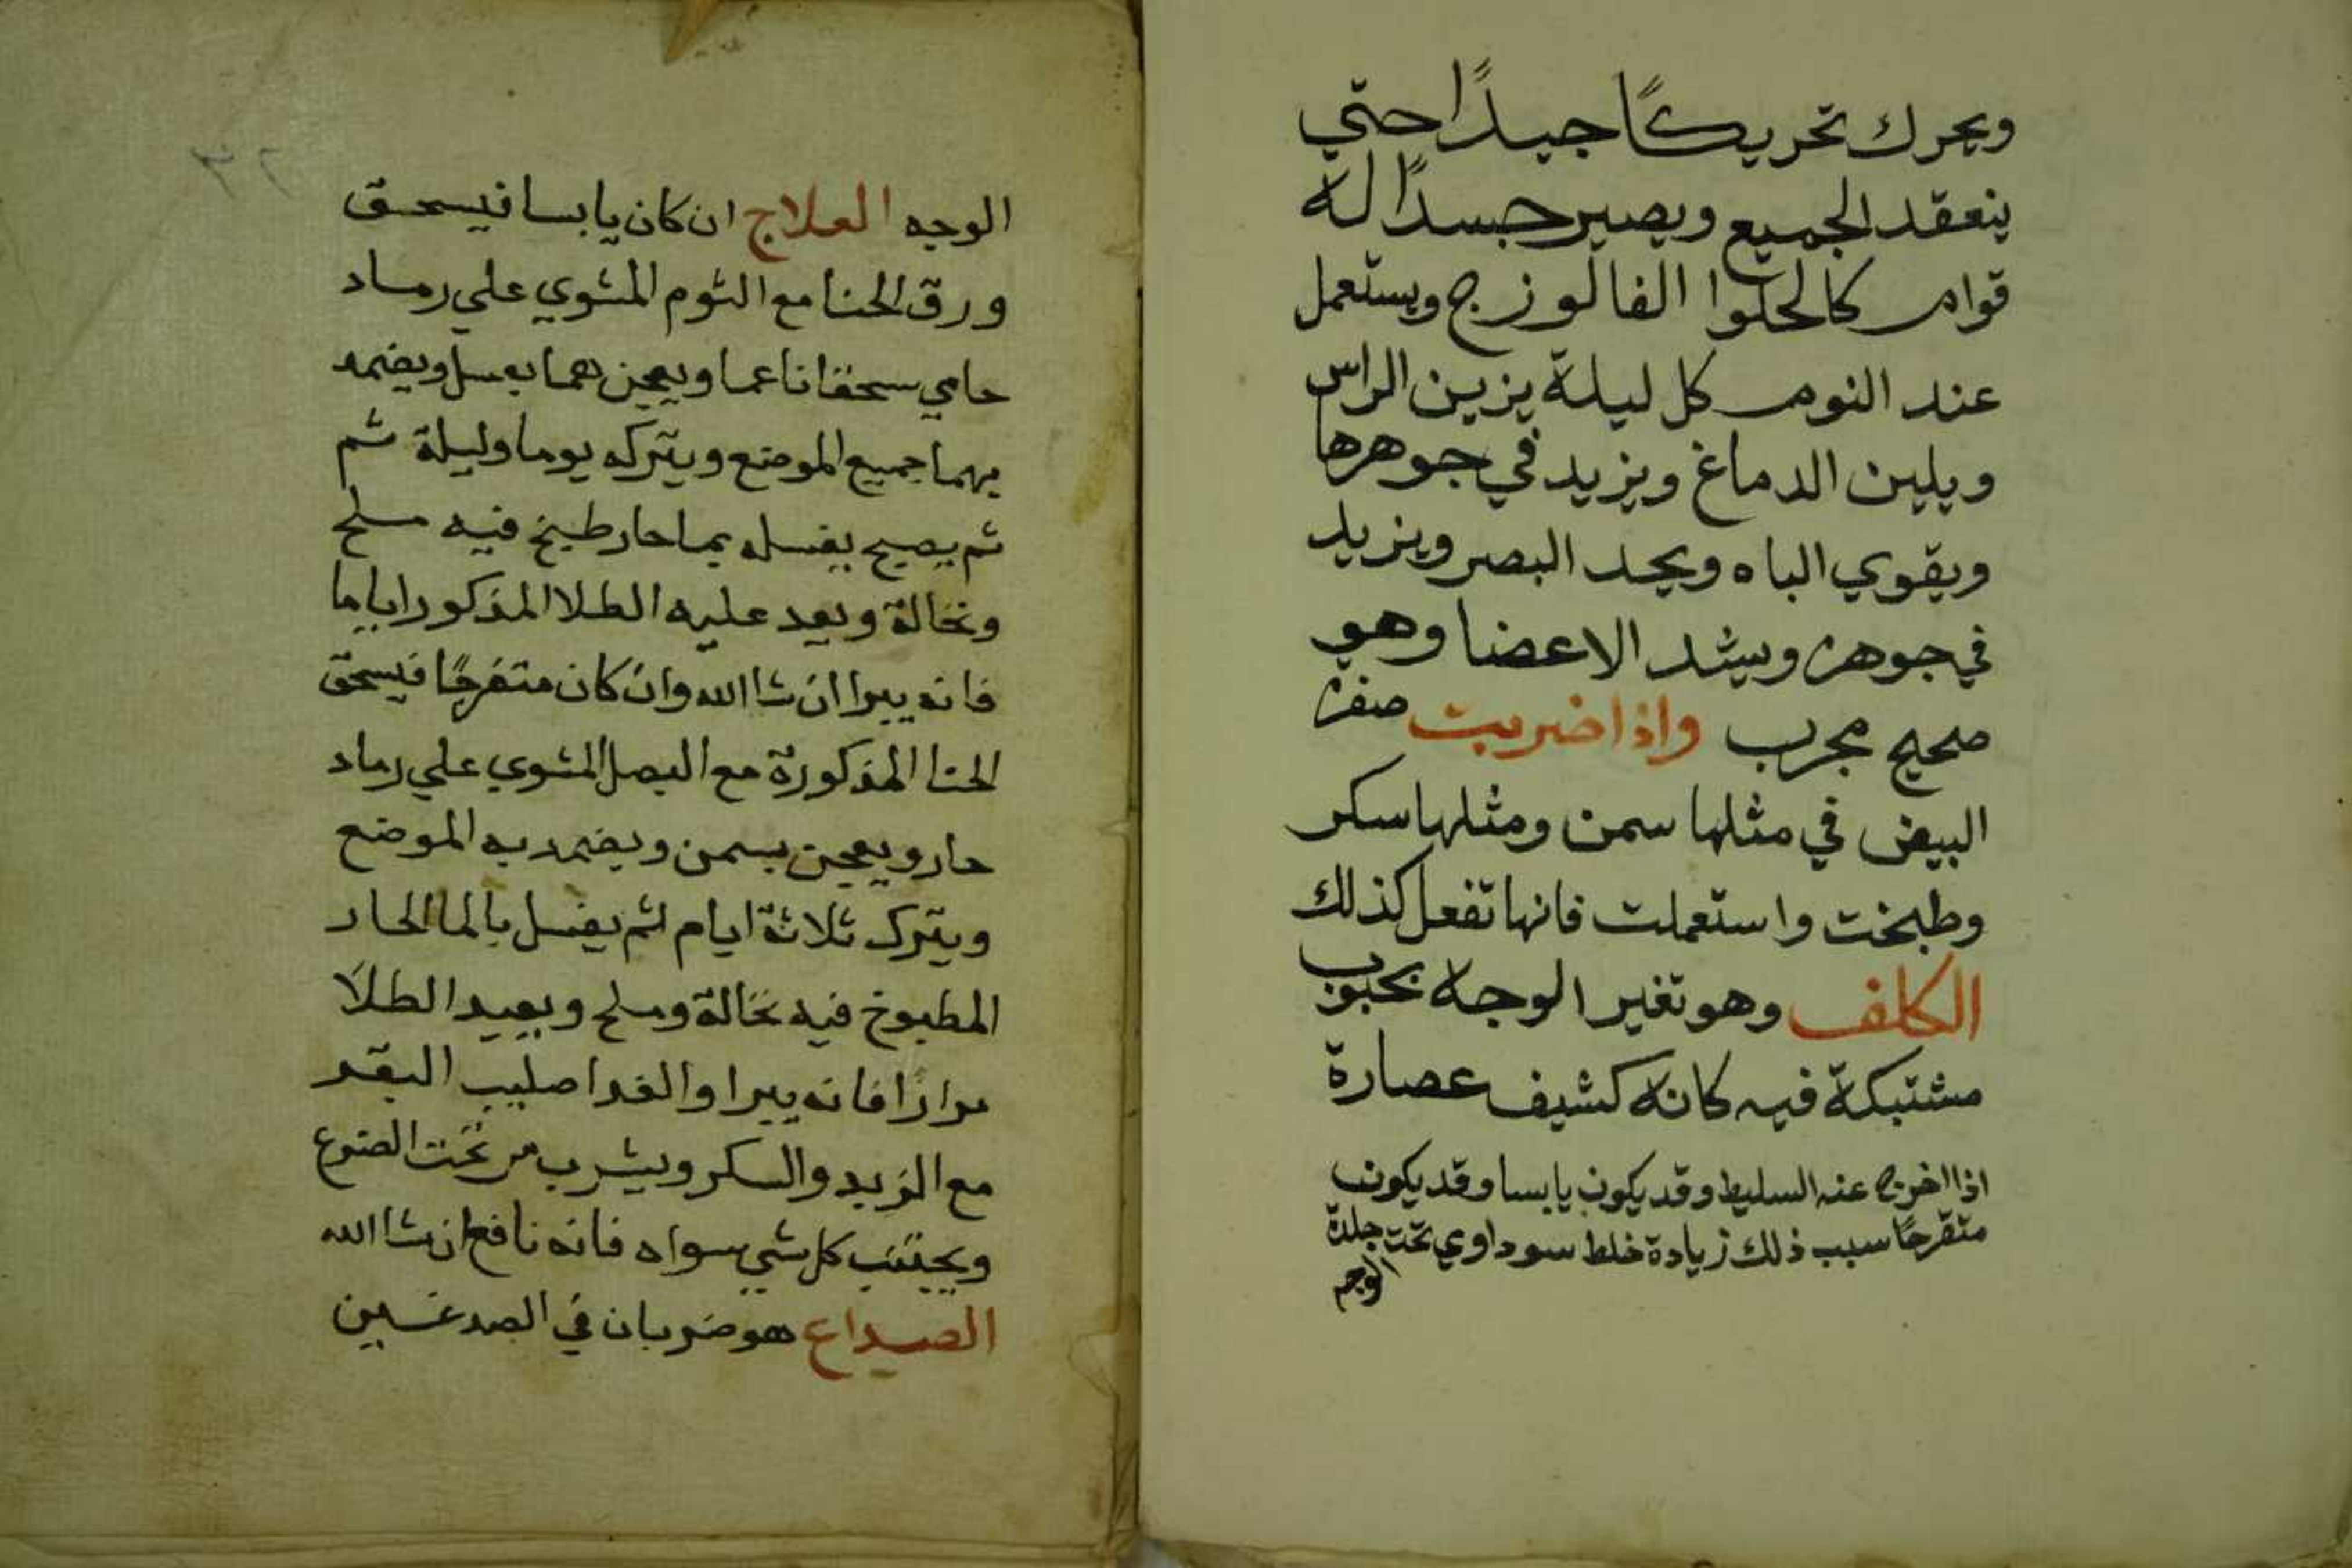 ويحرك تحريكًا جيدًا حتي
ينعقد الجميع ويصير جسدًا له
قوام كالحلوا الفالوزج ويستعمل
عند النوم كل ليلة يزين الراس
ويلين الدماغ ويزيد في جوهرها
ويقوي الباه ويحد البصر ويزيد
في جوهره ويشد الاعضا وهو
صحيح مجرب واذا ضربت صفرة
البيض في مثلها سمن ومثلها سكر
وطبخت واستعملت فانها تفعل كذلك
الكلف وهو تغير الوجه بحبوب
مشتبكة فيه كانه كشيف عصارة
اذا اخرج عنه السليط وقد يكون يابسا وقد يكون
متقرحًا سبب ذلك زيادة خلط سوداوي تحت جلدة
الوجه
الوجه العلاج ان كان يابسا فيسحق
ورق الحنا مع الثوم المشوي علي رماد
حامي سحقا ناعما ويعجن هما بعسل ويضمد
بهما جميع الموضع ويتركه يوما وليلة ثم
ثم يصبح يغسله بما حار طبخ فيه ملح
ونخالة ويعد عليه الطلا المذكور اياما
فانه يبرا ان شا الله وان كان متقرحًا فيسحق
الحنا المذكورة مع البصل المشوي علي رماد
حار ويعجن بسمن ويضمد به الموضع
ويترك ثلاثة ايام ثم يغسل بالما الحار
المطبوخ فيه نخالة وملح ويعيد الطلا
مرارًا فانه يبرا والغدا صليب البقر
مع الزبد والسكر ويشرب من تحت الضرع
ويجتنب كل شي سواه فانه نافع ان شا الله
الصداع هو ضربان في الصدغين